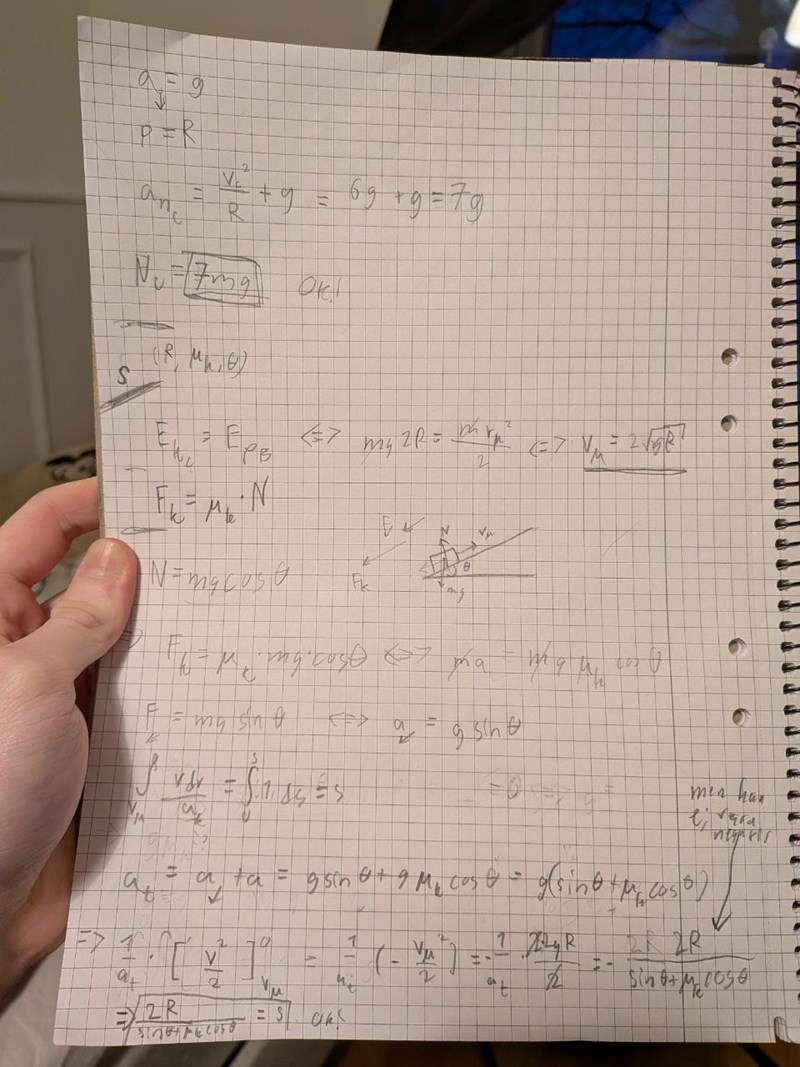 a↓ = g
ρ = R
a_{n_c} = v_c²/R + g = 6g + g = 7g
N_c = 7mg OK!
S (R, μ_k, θ)
E_{k_c} = E_{p_B} <=> mg2R = m v_μ²/2 <=> v_μ = 2√gR
F_k = μ_k · N
F↙ N v_μ
F_k θ mg
N = mg cos θ
=> F_k = μ_k · mg · cos θ <=> ma = mg μ_k cos θ
F↙ = mg sin θ <=> a↙ = g sin θ
∫_{v_μ}^{0} vdv/a_t = ∫_{0}^{s} 1 ds = s
men
a_t = a↙ + a = g sin θ + g μ_k cos θ = g(sin θ + μ_k cos θ)
=> 1/a_t · [v²/2]_{v_μ}^{0} = 1/a_t (- v_μ²/2) = - 1/a_t · 2·2gR/2 = - 2R/(sin θ + μ_k cos θ)
=> 2R/(sin θ + μ_k cos θ) = s OK!